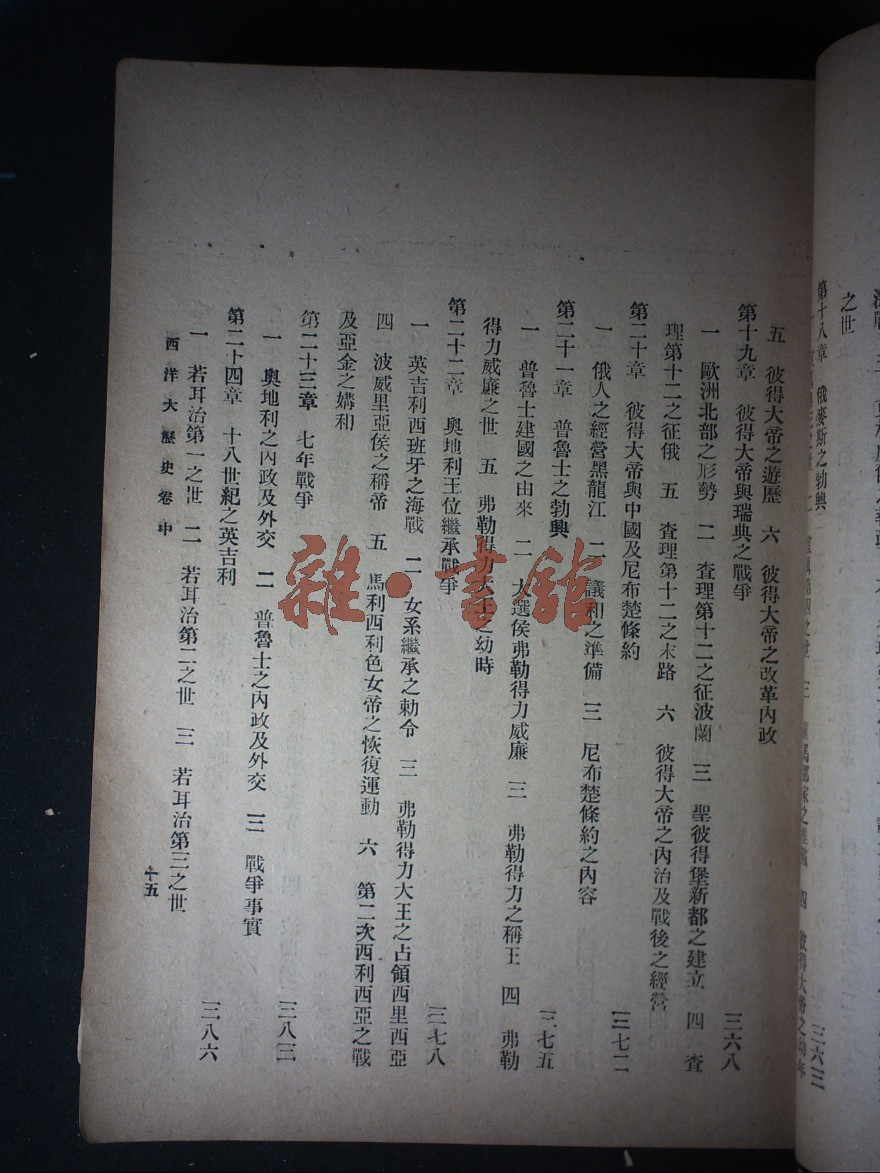 之世
第十八章　俄麥斯之勃興　三六三
四　彼得大帝之幼年
五　彼得大帝之遊歷　六　彼得大帝之改革內政
第十九章　彼得大帝與瑞典之戰爭　三六八
一　歐洲北部之形勢　二　查理第十二之征波蘭　三　聖彼得堡新都之建立　四　查
理第十二之征俄　五　查理第十二之末路　六　彼得大帝之內治及戰後之經營
第二十章　彼得大帝與中國及尼布楚條約　三七二
一　俄人之經營黑龍江　二　議和之準備　三　尼布楚條約之內容
第二十一章　普魯士之勃興　三七五
一　普魯士建國之由來　二　大選侯弗勒得力威廉　三　弗勒得力之稱王　四　弗勒
得力威廉之世　五　弗勒得力大王之幼時
第二十二章　奧地利王位繼承戰爭　三七八
一　英吉利西班牙之海戰　二　女系繼承之勅令　三　弗勒得力大王之占領西里西亞
四　波威里亞侯之稱帝　五　馬利西利色女帝之恢復運動　六　第二次西利西亞之戰
及亞金之媾和
第二十三章　七年戰爭　三八三
一　奧地利之內政及外交　二　普魯士之內政及外交　三　戰爭事實
第二十四章　十八世紀之英吉利　三八六
一　若耳治第一之世　二　若耳治第二之世　三　若耳治第三之世
西洋大歷史卷中　十五
雜·書館